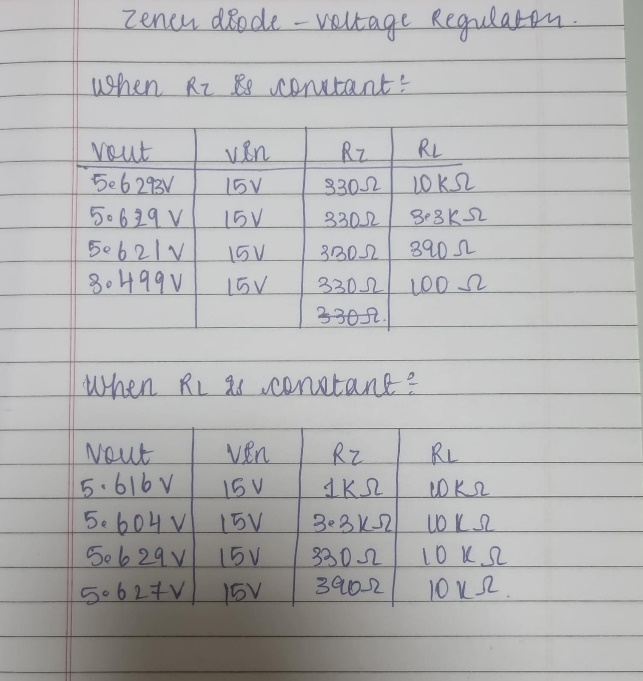 Zener diode - voltage Regulator.
When Rz is constant:
Vout Vin Rz RL
5.6293V 15V 330Ω 10KΩ
5.629V 15V 330Ω 3.3KΩ
5.621V 15V 330Ω 390Ω
3.499V 15V 330Ω 100Ω
330Ω.
When RL is constant:
Vout Vin Rz RL
5.616V 15V 1KΩ 10KΩ
5.604V 15V 3.3KΩ 10KΩ
5.629V 15V 330Ω 10KΩ
5.627V 15V 390Ω 10KΩ.